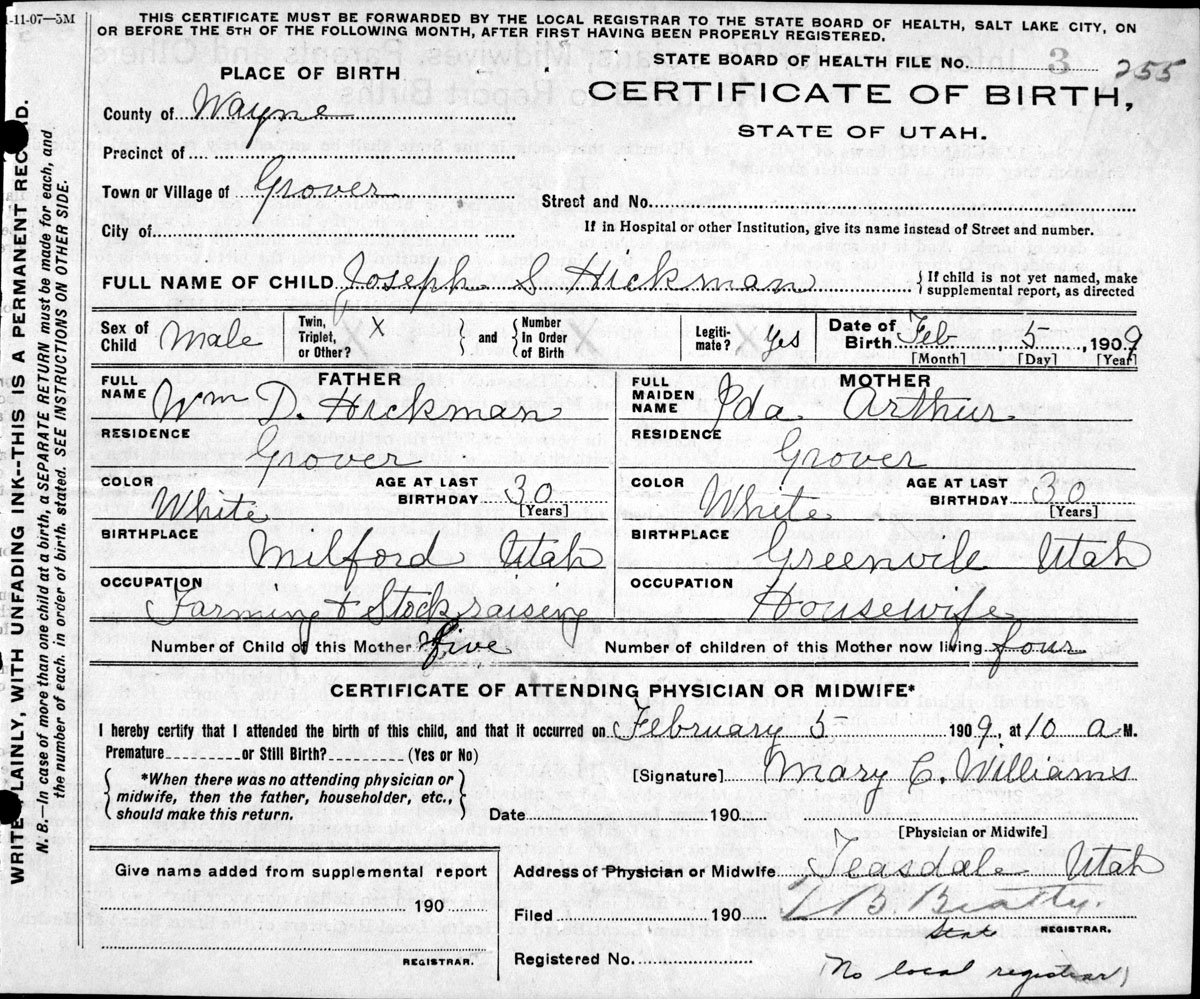 1-11-07—5M
THIS CERTIFICATE MUST BE FORWARDED BY THE LOCAL REGISTRAR TO THE STATE BOARD OF HEALTH, SALT LAKE CITY, ON
OR BEFORE THE 5TH OF THE FOLLOWING MONTH, AFTER FIRST HAVING BEEN PROPERLY REGISTERED.
STATE BOARD OF HEALTH FILE No. 3 255
PLACE OF BIRTH
CERTIFICATE OF BIRTH,
STATE OF UTAH.
County of Wayne
Precinct of
Town or Village of Grover
Street and No.
City of
If in Hospital or other Institution, give its name instead of Street and number.
FULL NAME OF CHILD Joseph S Hickman { If child is not yet named, make supplemental report, as directed
Sex of Child Male Twin, Triplet, or Other? X } and { Number In Order of Birth Legiti-mate? Yes Date of Birth Feb 5, 1909
[Month] [Day] [Year]
FULL NAME FATHER Wm D. Hickman
FULL MAIDEN NAME MOTHER Ida Arthur
RESIDENCE Grover
RESIDENCE Grover
COLOR White AGE AT LAST BIRTHDAY 30 [Years]
COLOR White AGE AT LAST BIRTHDAY 30 [Years]
BIRTHPLACE Milford Utah
BIRTHPLACE Greenvile Utah
OCCUPATION Farming & Stock raising
OCCUPATION Housewife
Number of Child of this Mother five Number of children of this Mother now living four
CERTIFICATE OF ATTENDING PHYSICIAN OR MIDWIFE*
I hereby certify that I attended the birth of this child, and that it occurred on February 5 1909, at 10 a M.
Premature or Still Birth? (Yes or No)
{ *When there was no attending physician or midwife, then the father, householder, etc., should make this return. }
[Signature] Mary C. Williams
Date 190
[Physician or Midwife]
Give name added from supplemental report
190
REGISTRAR.
Address of Physician or Midwife Teasdale Utah
Filed 190 T B. Beatty.
State REGISTRAR.
Registered No. (No local registrar)
WRITE PLAINLY, WITH UNFADING INK--THIS IS A PERMANENT RECORD.
N. B.—In case of more than one child at a birth, a SEPARATE RETURN must be made for each, and
the number of each, in order of birth, stated. SEE INSTRUCTIONS ON OTHER SIDE.